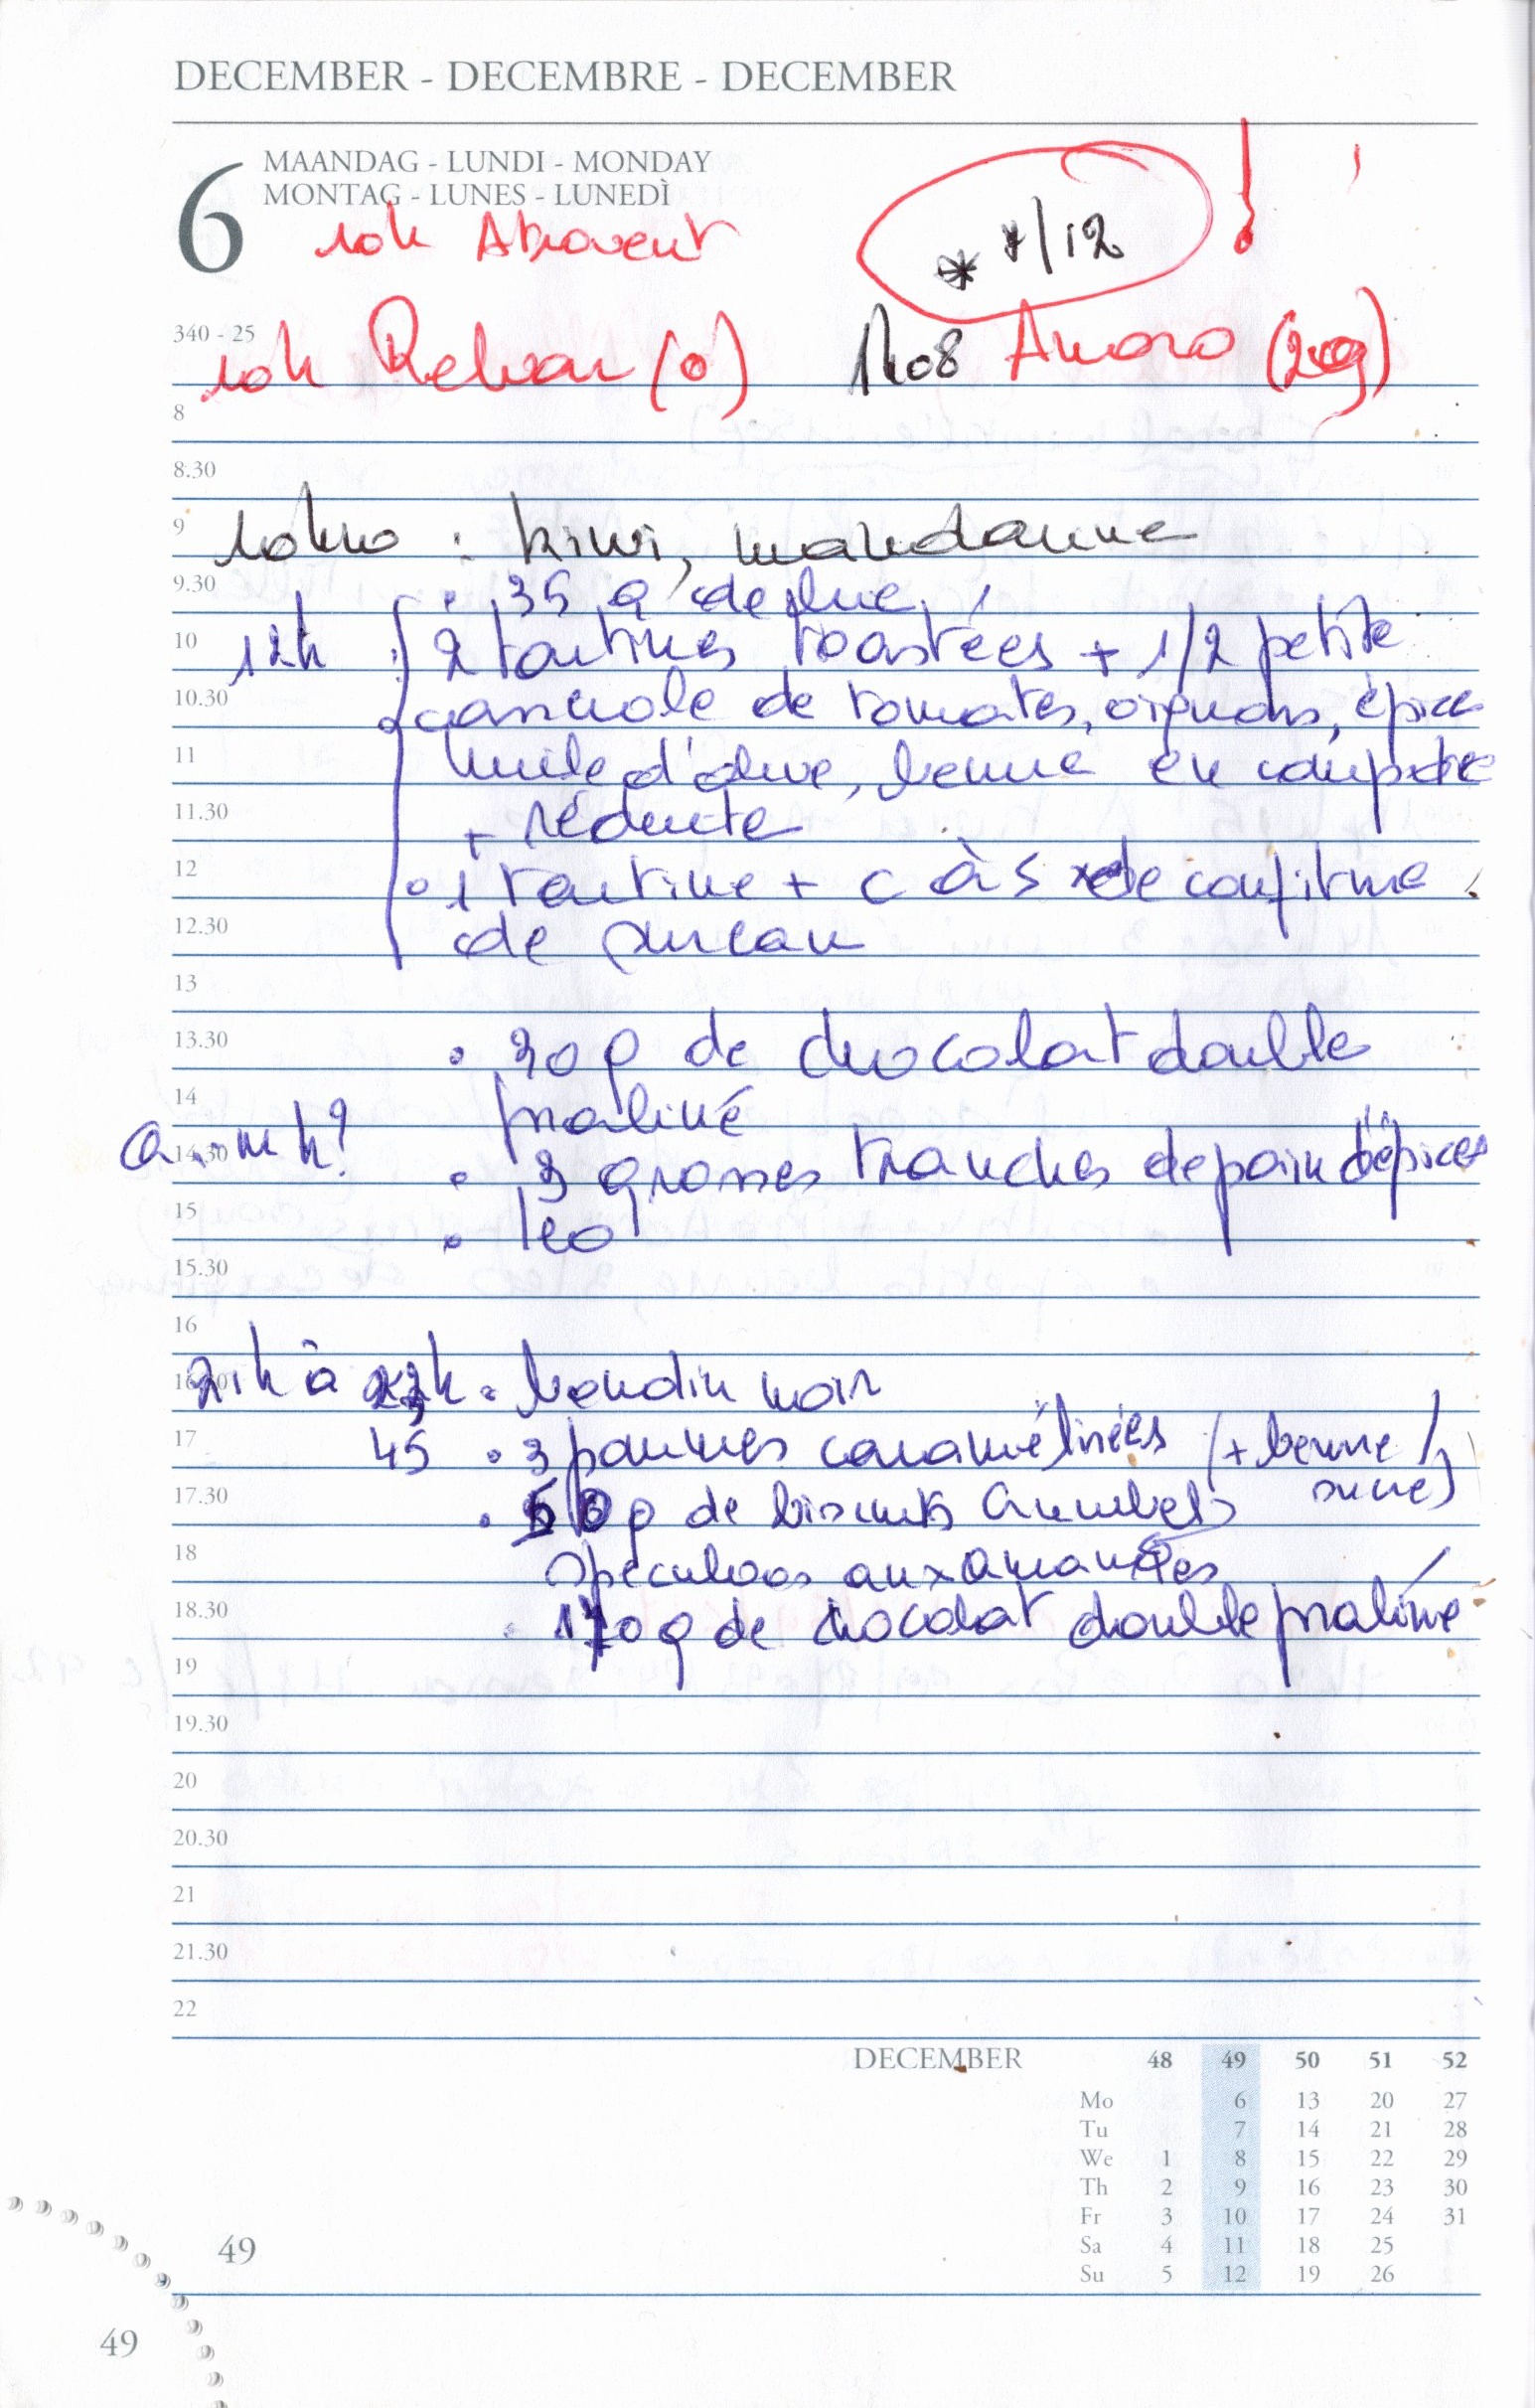 DECEMBER - DECEMBRE - DECEMBER
6
MAANDAG - LUNDI - MONDAY
MONTAG - LUNES - LUNEDÌ
10h Atrovent
* */12 !
340 - 25
10h Relvar (0) 1h08 Anoro (209)
8
8.30
9
10h40 : kiwi, mandarine
9.30
35 g de
10
12h : 2 tartines toastées + 1/2 petite
10.30
casserole de tomates, oignons, épices
11
huile d'olive, beurre en compote
11.30
+ réduite
12
1 tartine + c à s de confiture
12.30
de sureau
13
13.30
. 30 g de chocolat double
14
praliné
14.30
a.m h? . 3 grosses tranches de pain d'épices
15
. Leo
15.30
16
16.30
21h à 22h . boudin noir
17
45 . 3 pommes caramélisées (+ beurre /
sucre)
17.30
. 60 g de biscuits
18
speculoos aux amandes
18.30
. 170 g de chocolat double praliné
19
19.30
20
20.30
21
21.30
22
DECEMBER 48 49 50 51 52
Mo 6 13 20 27
Tu 7 14 21 28
We 1 8 15 22 29
Th 2 9 16 23 30
Fr 3 10 17 24 31
Sa 4 11 18 25
Su 5 12 19 26
49
49